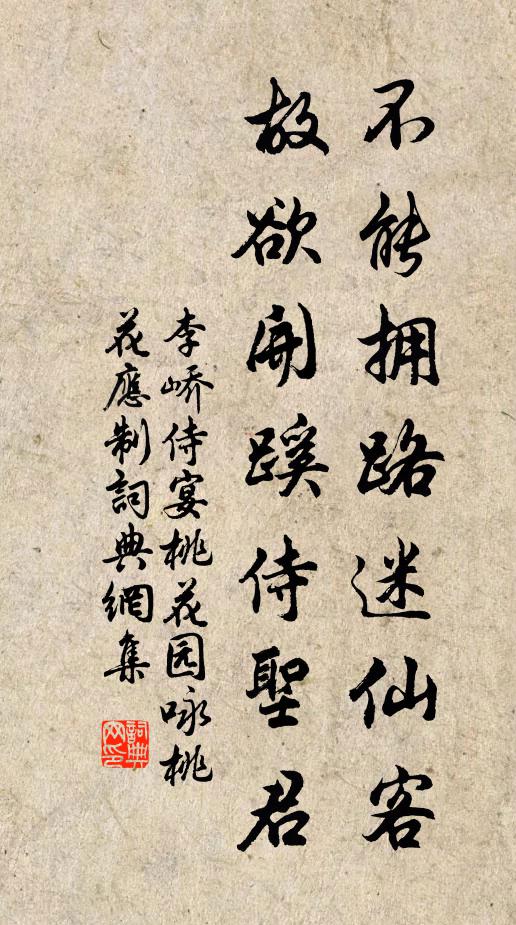 不能拥路迷仙客
故欲開蹊侍聖君
李峤侍宴桃花园咏桃
花應制詞典網集
詞典網印